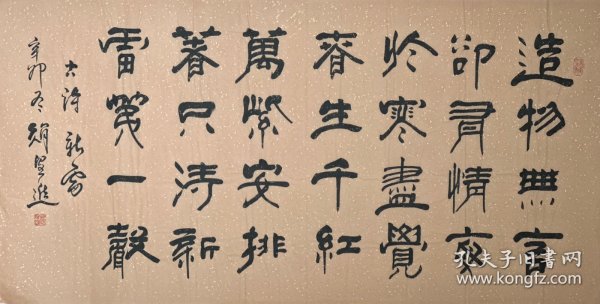 造物無言
卻有情每
於寒盡覺
春生千紅
萬紫安排
著只待新
雷第一聲
古詩 新雷
辛卯 趙望進
孔夫子旧书网
www.kongfz.com